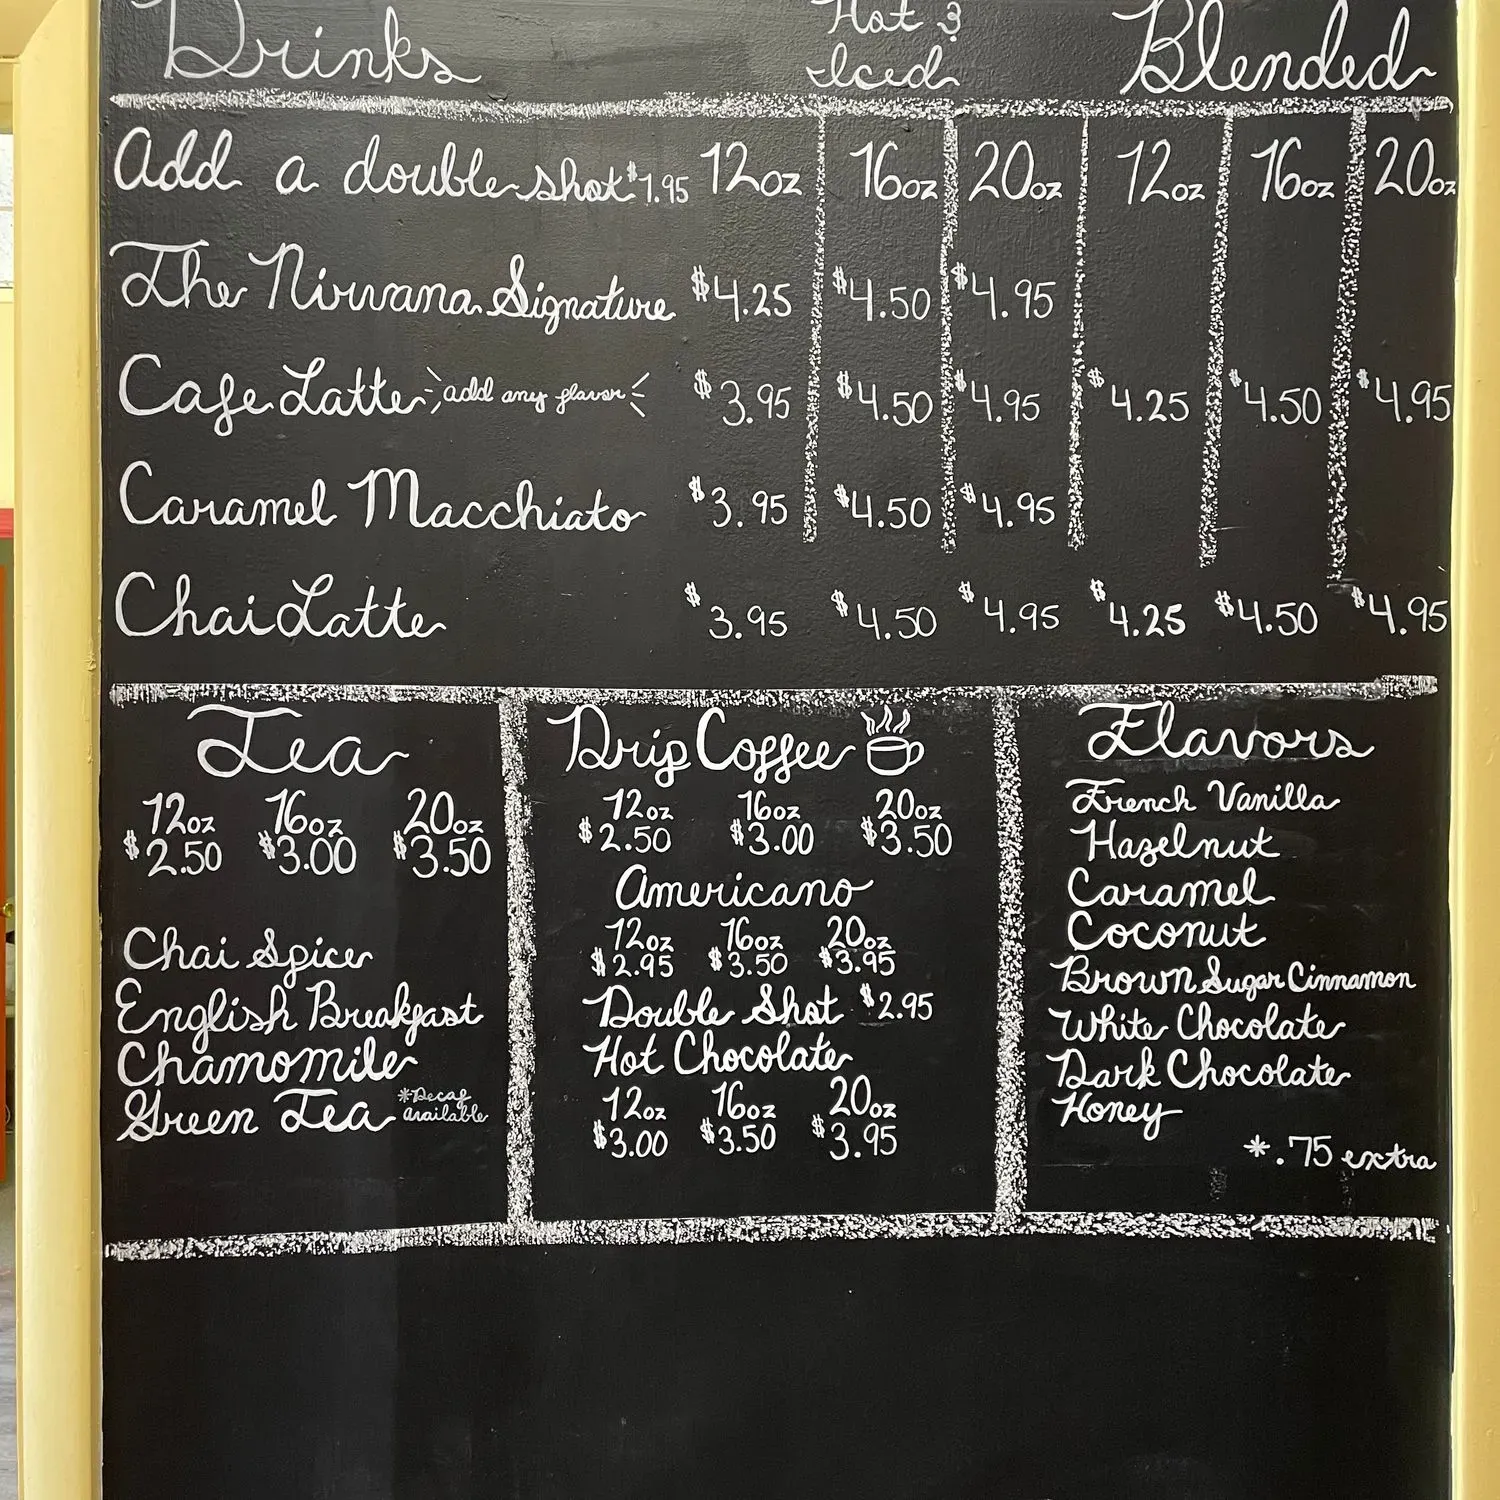 Drinks Hot & Iced Blended
Add a double shot $1.95 12oz 16oz 20oz 12oz 16oz 20oz
The Nirvana Signature $4.25 $4.50 $4.95
Cafe Latte add any flavor $3.95 $4.50 $4.95 $4.25 $4.50 $4.95
Caramel Macchiato $3.95 $4.50 $4.95
Chai Latte $3.95 $4.50 $4.95 $4.25 $4.50 $4.95
Tea
12oz 16oz 20oz
$2.50 $3.00 $3.50
Chai Spice
English Breakfast
Chamomile
Green Tea *Decaf available
Drip Coffee
12oz 16oz 20oz
$2.50 $3.00 $3.50
Americano
12oz 16oz 20oz
$2.95 $3.50 $3.95
Double Shot $2.95
Hot Chocolate
12oz 16oz 20oz
$3.00 $3.50 $3.95
Flavors
French Vanilla
Hazelnut
Caramel
Coconut
Brown Sugar Cinnamon
White Chocolate
Dark Chocolate
Honey
*.75 extra